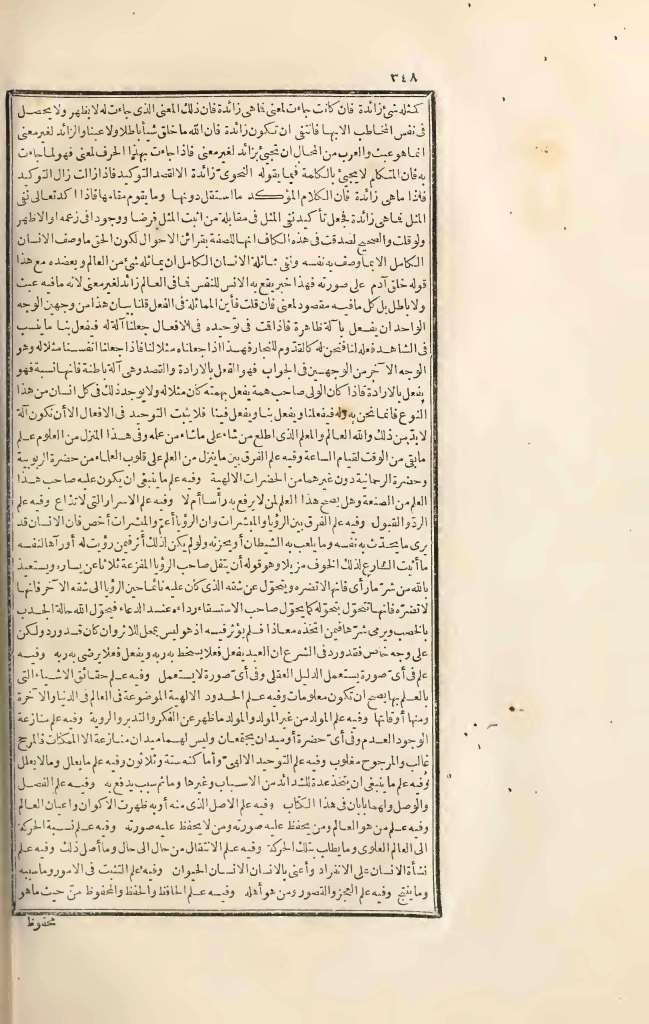 ٣٤٨
كمثله شئ زائدة فان كانت جاءت لمعنى فما هى زائدة فان ذلك المعنى الذى جاءت له لا يظهر ولا يحصل
فى نفس المخاطب الا بها فانتفى ان تكون زائدة فان الله ما خلق شيأ باطلا ولا عبثا والزائد لغير معنى
انما هو عبث والعرب من المحال ان تجىء بزائد لغير معنى فاذا جاءت بهذا الحرف لمعنى فهو لما جاءت
به فان المتكلم لا يجىء بالكلمة فيما يقوله النحوى زائدة الا لقصد التوكيد فاذا زالت زال التوكيد
فاذا ما هى زائدة فان الكلام المؤكد ما استقل دونها وما يقوم مقامها فاذا أكد تعالى نفى
المثل فما هى زائدة فجعل تأكيد نفى المثل فى مقابلة من أثبت المثل فرضا ووجودا فى زعمه والاظهر
ولو قلت والصحيح لصدقت فى هذه الكاف انها للصفة بقرائن الاحوال لكون الحق ما وصف الانسان
الكامل الا بما وصف به نفسه ونفى مماثلة الانسان الكامل ان يماثله شئ من العالم ويعضده مع هذا
قوله خلق آدم على صورته فهذا خبر يقع به الانس للنفس فما فى العالم زائد لغير معنى لانه ما فيه عبث
ولا باطل بل كل ما فيه مقصود لمعنى فان قلت فأين المماثلة فى الفعل قلنا بيان هذا من وجهين الوجه
الواحد ان يفعل بآلة ظاهرة فاذا قت فى توحيده فى الافعال جعلنا آلة له فيفعل بنا ما ينسب
فى الشاهد فعله لنا فنحن له كالقدوم للنجار فهذا اذا جعلناه مثلا لنا فاذا جعلنا انفسنا مثلا له وهو
الوجه الآخر من الوجهين فى الجواب فهو الفعل بالارادة والقصد وهى آلة باطنة فانها نسبة فهو
يفعل بالارادة فاذا كان الولى صاحب همة يفعل بهمته كان مثلا له ولا يوجد ذلك فى كل انسان من هذا
النوع فانما نحن به وله فيفعلنا ويفعل بنا ويفعل فينا فلا يثبت التوحيد فى الافعال الا أن نكون آلة
لا بد من ذلك والله العالم والمعلم الذى اطلع من شاء على ما شاء من علمه وفى هذا المنزل من العلوم علم
ما بقى من الوقت لقيام الساعة وفيه علم الفرق بين ما ينزل من العلم على قلوب العلماء من حضرة الربوبية
وحضرة الرحمانية دون غيرهما من الحضرات الالهية وفيه علم ما ينبغى ان يكون عليه صاحب هذا
العلم من الصنعة وهل يصح هذا العلم لمن لا يرفع به رأسا أم لا وفيه علم الاسرار التى لا تذاع وفيه علم
الرد والقبول وفيه علم الفرق بين الرؤيا والمبشرات وان الرؤيا أعم والمبشرات أخص فان الانسان قد
يرى ما يحدث به نفسه وما يلعب به الشيطان أو يحزنه ولو لم يكن لذلك أثر فيمن رؤيت له أو رآها لنفسه
ما أثبت الشارع لذلك الخوف مزيلا وهو قوله أن يتفل صاحب الرؤيا المفزعة ثلاثا عن يساره ويستعيذ
بالله من شر ما رأى فانها لا تضره ويتحول عن شقه الذى كان عليه نائما حين الرؤيا الى شقه الآخر فانها
لا تضره فانها تتحول بتحوله كما يحول صاحب الاستسقاء رداءه عند الدعاء فيحول الله حالة الجدب
بالخصب ويرمى شرها فيمن اتخذه معاذا فلم يؤثر فيه اذ هو ليس بمحل للاثر وان كان قد ورد ولكن
على وجه خاص فقد ورد فى الشرع ان العبد يفعل فعلا يسخط به ربه ويفعل فعلا يرضى به ربه وفيه
علم فى أى صورة يستعمل الدليل العقلى وفى أى صورة لا يستعمل وفيه علم حقائق الاشياء التى
بالعلم بها يصح ان تكون معلومات وفيه علم الحدود الالهية الموضوعة فى العالم فى الدنيا والآخرة
ومنها أوقاتها وفيه علم المولد من غير المولد والمولد ما ظهر عن الفكر والتدبر والروية وفيه علم منازعة
الوجود العدم وفى أى حضرة أو ميدان يجتمعان وليس لهما ميدان منازعة الا الممكنات فالمرجح
غالب والمرجوح مغلوب وفيه علم التوحيد الالهى وأما كنه ستة وثلاثون وفيه علم ما يعلل وما لا يعلل
وفيه علم ما ينبغى ان يتخذ عدة للشدائد من الاسباب وغيرها وما ثم سبب يدفع به وفيه علم الفصل
والوصل ولهما بابان فى هذا الكتاب وفيه علم الاصل الذى منه أو به ظهرت الأكوان واعيان العالم
وفيه علم من هو العالم ومن يحفظ عليه صورته ومن لا يحفظ عليه صورته وفيه علم نسبة الحركة
الى العالم العلوى وما يطلب بتلك الحركة وفيه علم الانتقال من حال الى حال وما أصل ذلك وفيه علم
نشأة الانسان على الانفراد وأعنى بالانسان الانسان الحيوان وفيه علم التثبت فى الامور وما سببه
وما ينتج وفيه علم العجز والقصور ومن هو أهله وفيه علم الحافظ والحفظ والمحفوظ من حيث ما هو
محفوظ